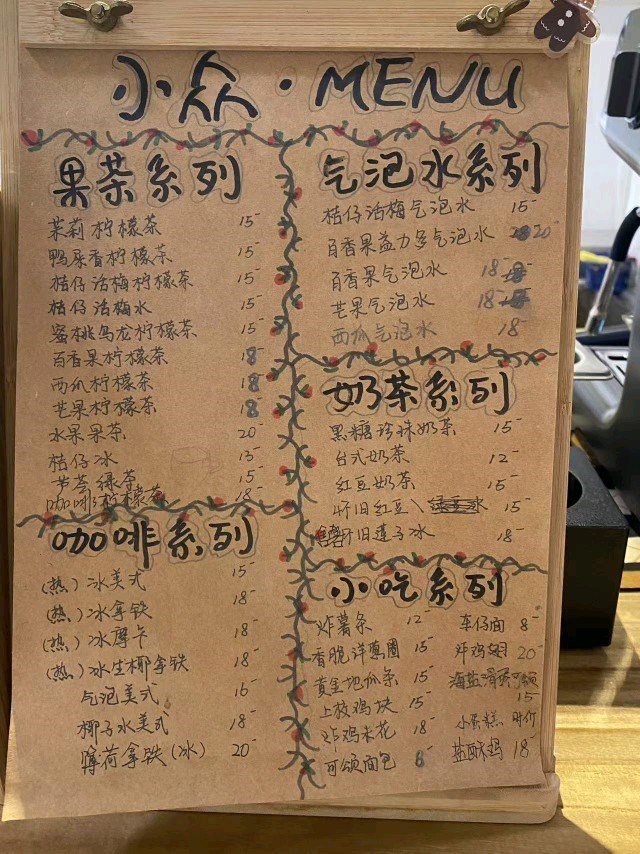 小众·MENU
果茶系列
茉莉柠檬茶 15-
鸭屎香柠檬茶 15-
桔仔话梅柠檬茶 15-
桔仔话梅水 15-
蜜桃乌龙柠檬茶 15-
百香果柠檬茶 18-
西瓜柠檬茶 18-
芒果柠檬茶 18-
水果果茶 20-
桔仔冰 15-
芦荟绿茶 15-
咖啡柠檬茶 18-
咖啡系列
(热)冰美式 15-
(热)冰拿铁 18-
(热)冰摩卡 18-
(热)冰生椰拿铁 18-
气泡美式 16-
椰子水美式 18-
薄荷拿铁(冰) 20-
气泡水系列
桔仔话梅气泡水 15-
百香果益力多气泡水 20-
百香果气泡水 18-
芒果气泡水 18-
西瓜气泡水 18-
奶茶系列
黑糖珍珠奶茶 15-
台式奶茶 12-
红豆奶茶 15-
怀旧红豆\ 冰 15-
怀旧莲子冰 18-
小吃系列
炸薯条 12-
香脆洋葱圈 15-
黄金地瓜条 15-
上校鸡块 15-
炸鸡米花 18-
可颂面包 8-
车仔面 8-
炸鸡翅 20-
海盐 可颂 15-
小蛋糕 时价
盐酥鸡 18-